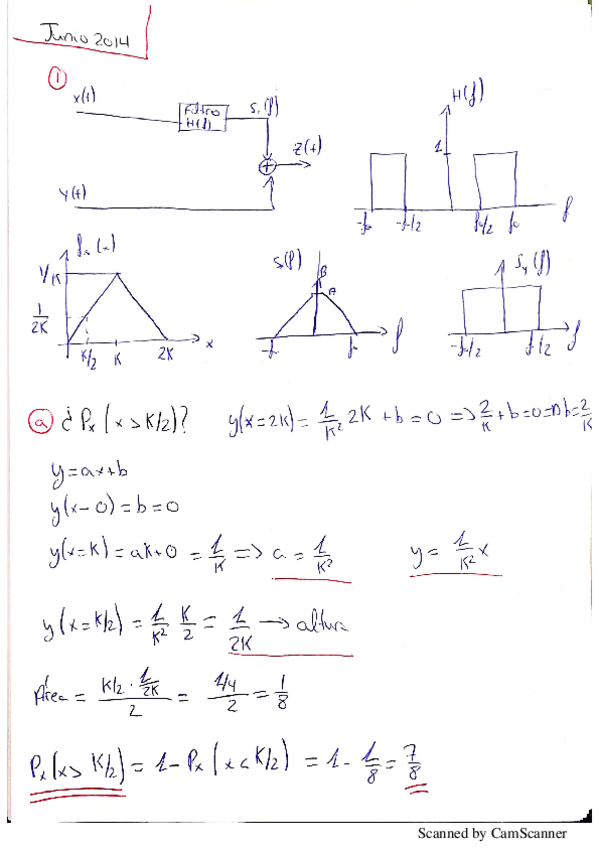 Junio 2014
①
x(t)
Filtro
H(f)
S.(f)
Z(t)
Y(t)
H(f)
1
-fo
-fo/2
fo/2
fo
f
fx(x)
1/K
1
2K
K/2
K
2K
x
S(f)
B
A
f
Sy(f)
f
ⓐ ¿Px(x>K/2)?
y(x=2K) = 1/K² 2K + b = 0 => 2/K + b = 0 => b = 2/K
y=ax+b
y(x-0)=b=0
y(x=K)=aK+0 = 1/K => a = 1/K²
y = 1/K² x
y(x=K/2) = 1/K² K/2 = 1/2K → altura
Área = (K/2 · 1/2K)/2 = (1/4)/2 = 1/8
Px(x>K/2) = 1-Px(x<K/2) = 1 - 1/8 = 7/8
Scanned by CamScanner